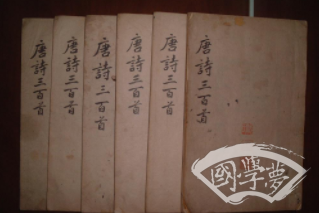 唐詩三百首
唐詩三百首
唐詩三百首
唐詩三百首
唐詩三百首
唐詩三百首
國學夢